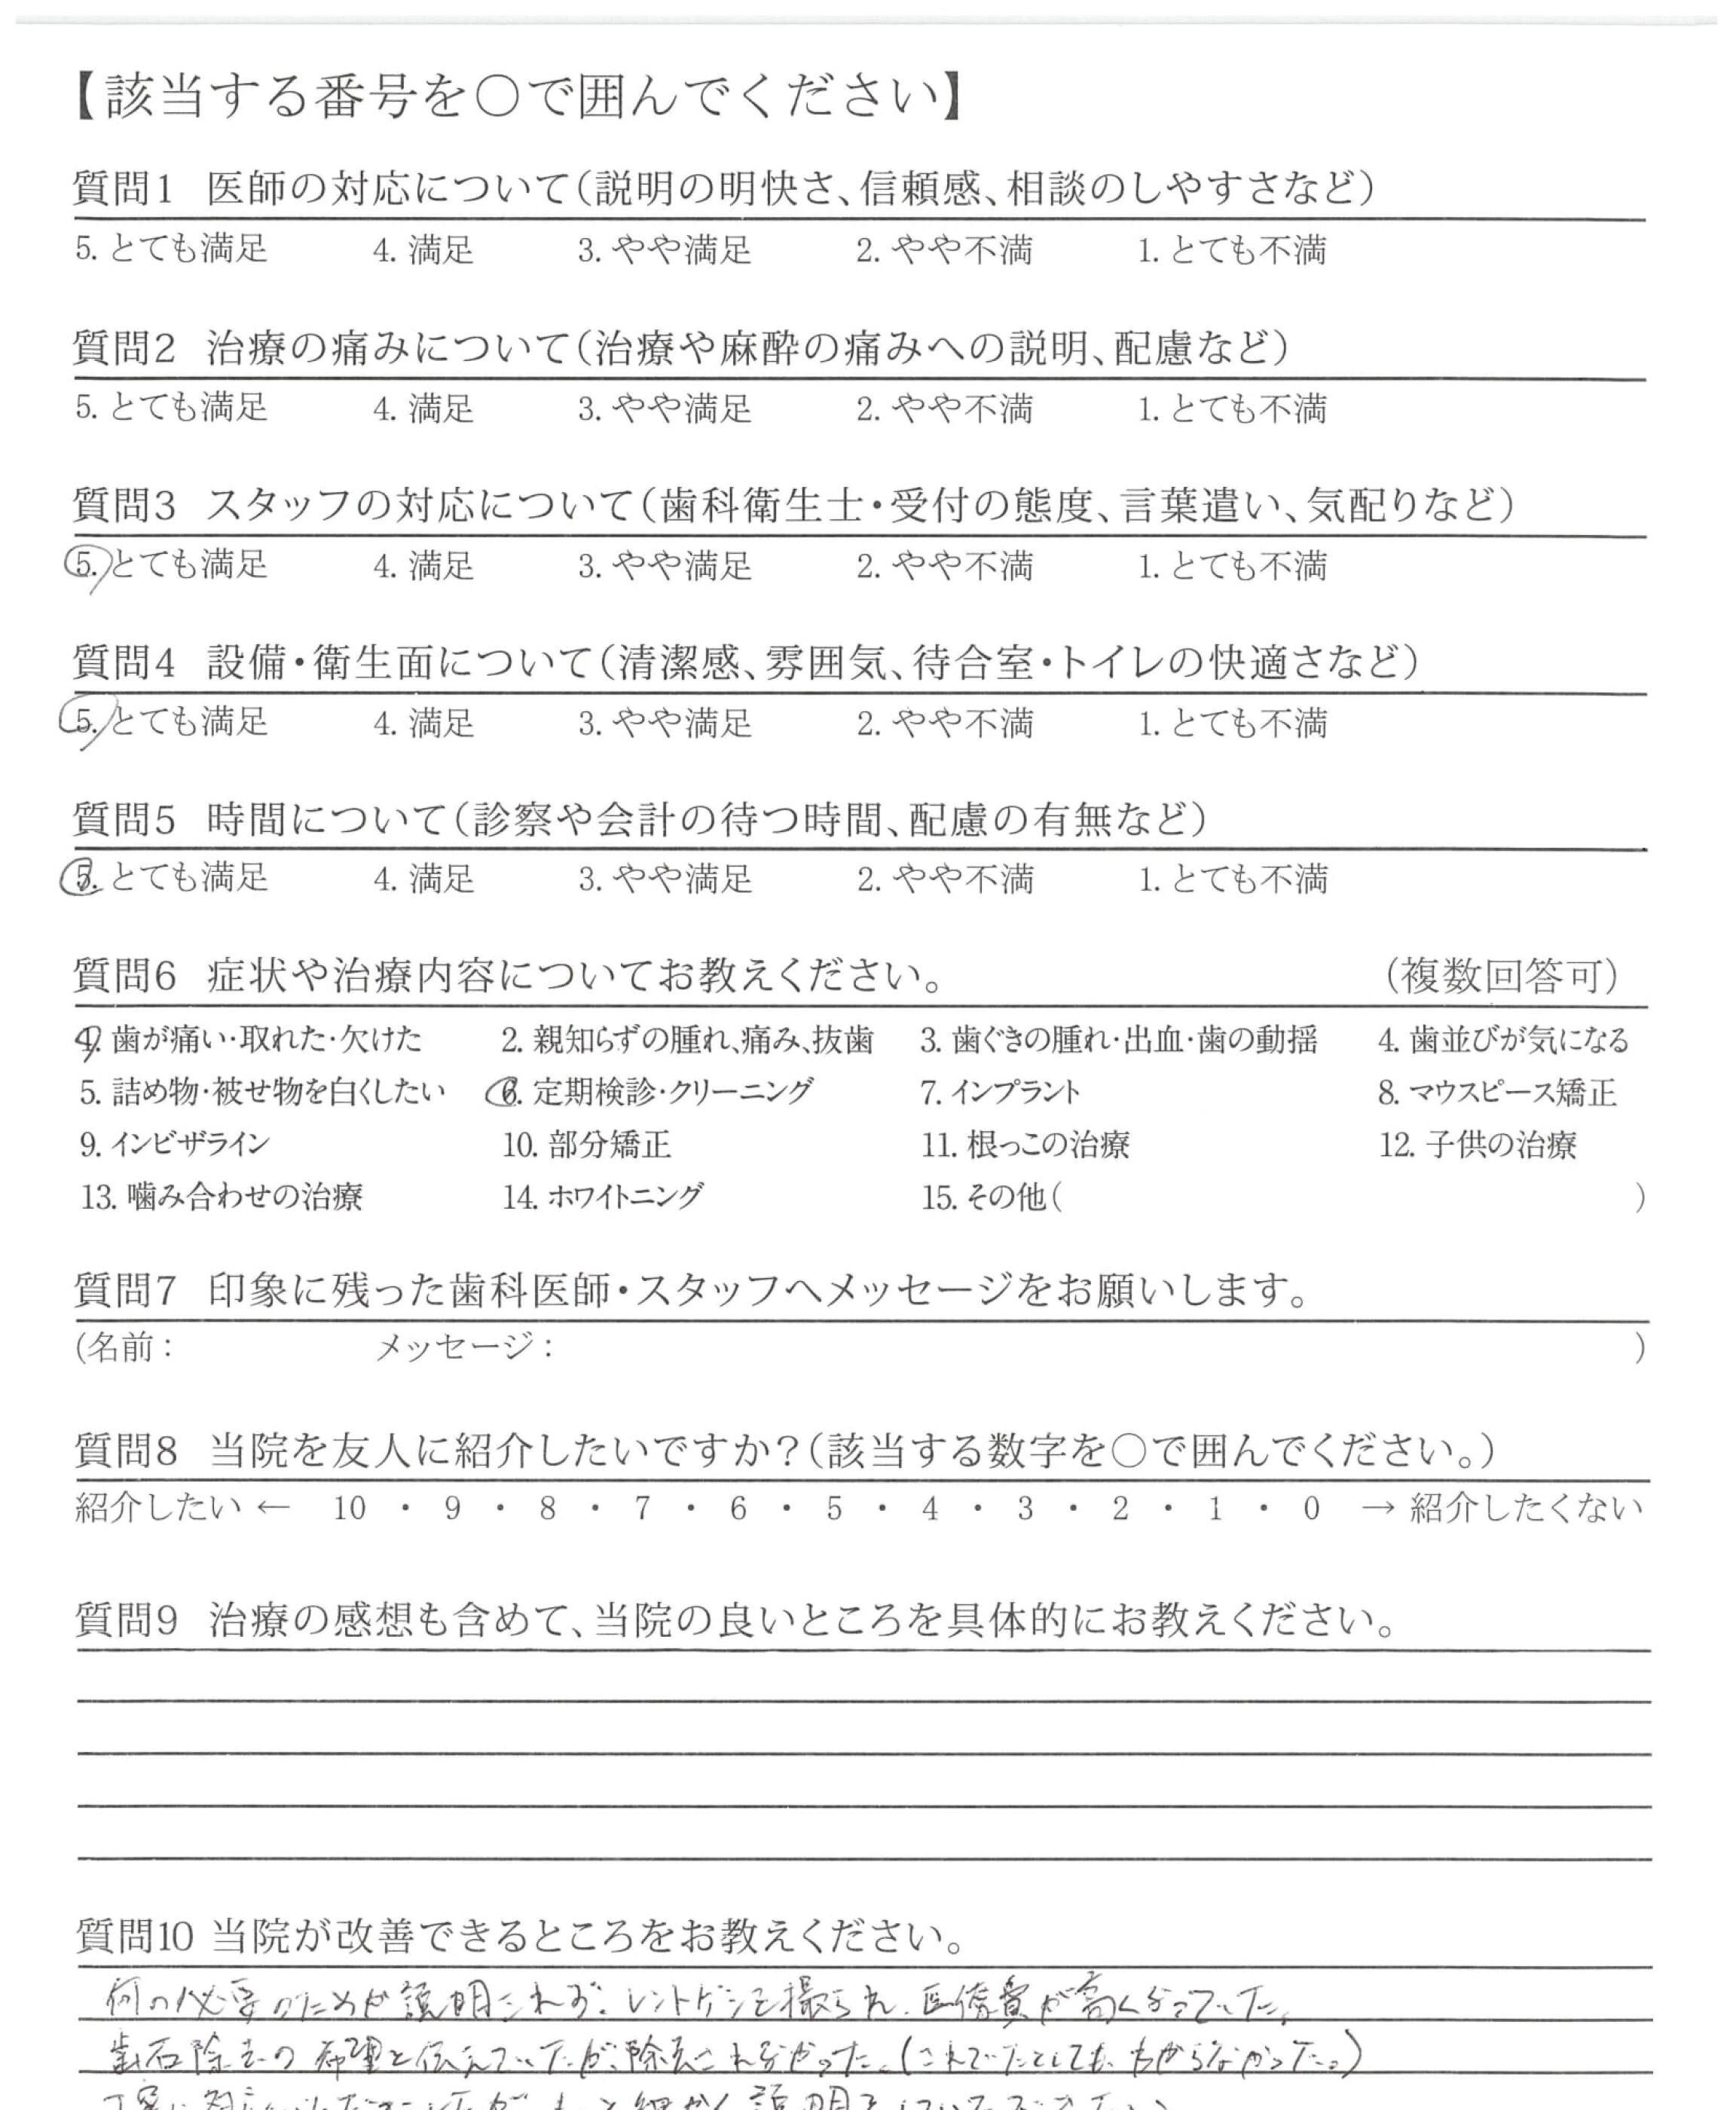 【該当する番号を○で囲んでください】
質問1 医師の対応について(説明の明快さ、信頼感、相談のしやすさなど)
5. とても満足 4. 満足 3. やや満足 2. やや不満 1. とても不満
質問2 治療の痛みについて(治療や麻酔の痛みへの説明、配慮など)
5. とても満足 4. 満足 3. やや満足 2. やや不満 1. とても不満
質問3 スタッフの対応について(歯科衛生士・受付の態度、言葉遣い、気配りなど)
5. とても満足 4. 満足 3. やや満足 2. やや不満 1. とても不満
質問4 設備・衛生面について(清潔感、雰囲気、待合室・トイレの快適さなど)
5. とても満足 4. 満足 3. やや満足 2. やや不満 1. とても不満
質問5 時間について(診察や会計の待つ時間、配慮の有無など)
5. とても満足 4. 満足 3. やや満足 2. やや不満 1. とても不満
質問6 症状や治療内容についてお教えください。 (複数回答可)
1. 歯が痛い・取れた・欠けた 2. 親知らずの腫れ、痛み、抜歯 3. 歯ぐきの腫れ・出血・歯の動揺 4. 歯並びが気になる
5. 詰め物・被せ物を白くしたい 6. 定期検診・クリーニング 7. インプラント 8. マウスピース矯正
9. インビザライン 10. 部分矯正 11. 根っこの治療 12. 子供の治療
13. 噛み合わせの治療 14. ホワイトニング 15. その他( )
質問7 印象に残った歯科医師・スタッフへメッセージをお願いします。
(名前: メッセージ: )
質問8 当院を友人に紹介したいですか?(該当する数字を○で囲んでください。)
紹介したい ← 10 ・ 9 ・ 8 ・ 7 ・ 6 ・ 5 ・ 4 ・ 3 ・ 2 ・ 1 ・ 0 → 紹介したくない
質問9 治療の感想も含めて、当院の良いところを具体的にお教えください。
質問10 当院が改善できるところをお教えください。
何の必要のためか説明されず、レントゲンを撮られ、医療費が高くなっていた。
歯石除去の希望を伝えていたが、除去されなかった。(されてたとしても、わからなかった。)
もっと細かく説明を